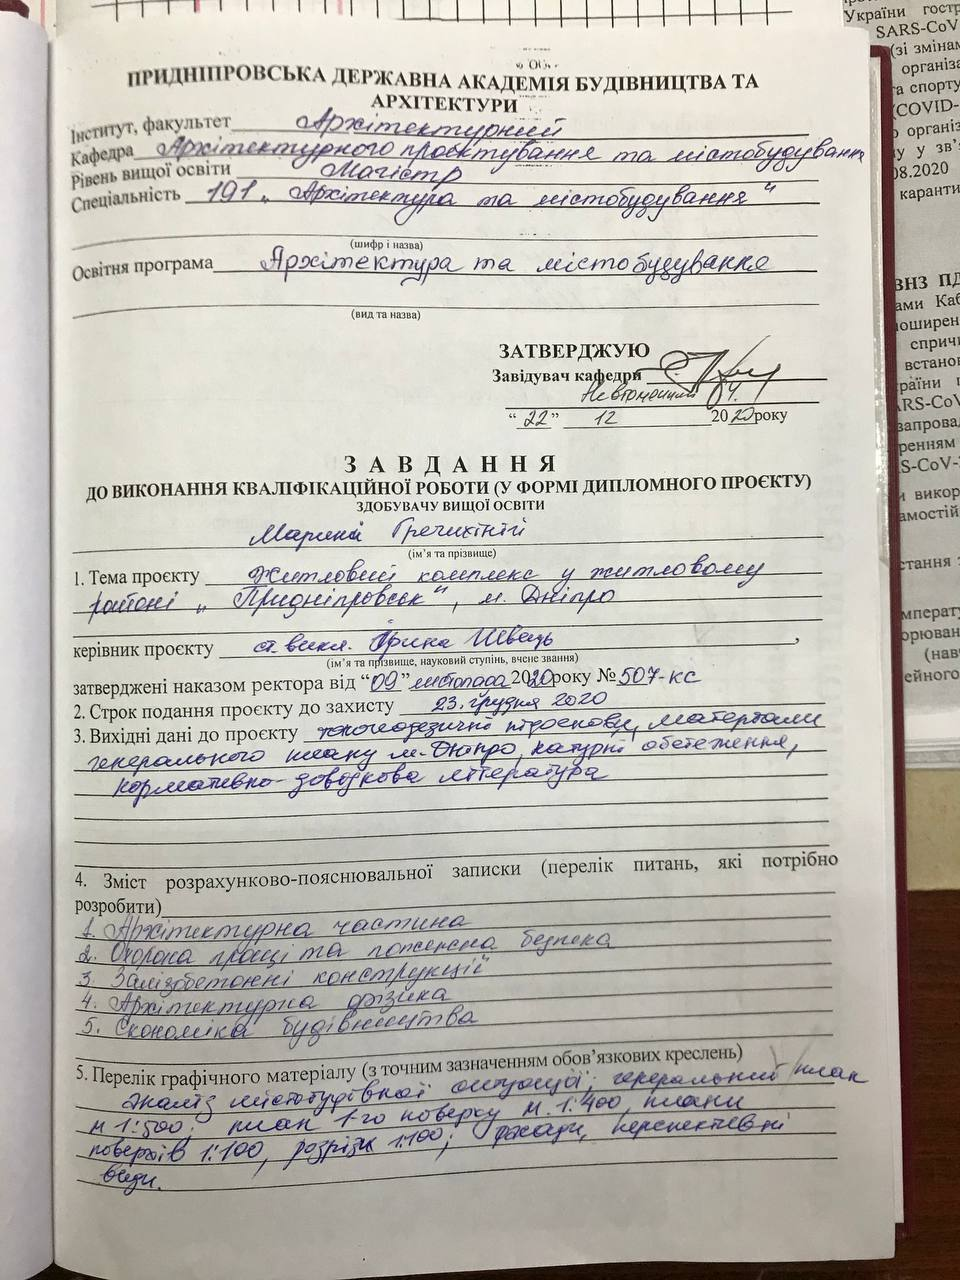 ПРИДНІПРОВСЬКА ДЕРЖАВНА АКАДЕМІЯ БУДІВНИЦТВА ТА
АРХІТЕКТУРИ
Інститут, факультет Архітектурний
Кафедра Архітектурного проєктування та містобудування
Рівень вищої освіти Магістр
Спеціальність 191 „Архітектура та містобудування“
(шифр і назва)
Освітня програма Архітектура та містобудування
(вид та назва)
ЗАТВЕРДЖУЮ
Завідувач кафедри
“ 22 ” 12 2020 року
З А В Д А Н Н Я
ДО ВИКОНАННЯ КВАЛІФІКАЦІЙНОЇ РОБОТИ (У ФОРМІ ДИПЛОМНОГО ПРОЄКТУ)
ЗДОБУВАЧУ ВИЩОЇ ОСВІТИ
Марині Гречихіній
(ім’я та прізвище)
1. Тема проєкту Житловий комплекс у житловому
районі „Придніпровськ“, м. Дніпро
керівник проєкту ст. викл. Ірина Швець,
(ім’я та прізвище, науковий ступінь, вчене звання)
затверджені наказом ректора від “09” листопада 2020 року № 507-кс
2. Строк подання проєкту до захисту 23. грудня 2020
3. Вихідні дані до проєкту топогеодезичні підоснови, матеріали
генерального плану м. Дніпро, натурні обстеження,
нормативно-довідкова література
4. Зміст розрахунково-пояснювальної записки (перелік питань, які потрібно
розробити)
1. Архітектурна частина
2. Охорона праці та пожежна безпека
3. Залізобетонні конструкції
4. Архітектурна фізика
5. Економіка будівництва
5. Перелік графічного матеріалу (з точним зазначенням обов’язкових креслень)
Аналіз містобудівної ситуації; генеральний план
м 1:500; план 1-го поверху м. 1:400, плани
поверхів 1:100, розрізи 1:100; фасади, перспективні
види.
України гост
SARS-CoV
(зі змінам
організа
та спорту
COVID-
організ
у у зв’я
08.2020
каранти
ВНЗ ПД
ами Каб
поширен
сприч
встано
раїни п
ARS-CoV
запровад
ренням
S-CoV-
и викор
амостій
стання
мперату
орюван
(нав
ейного